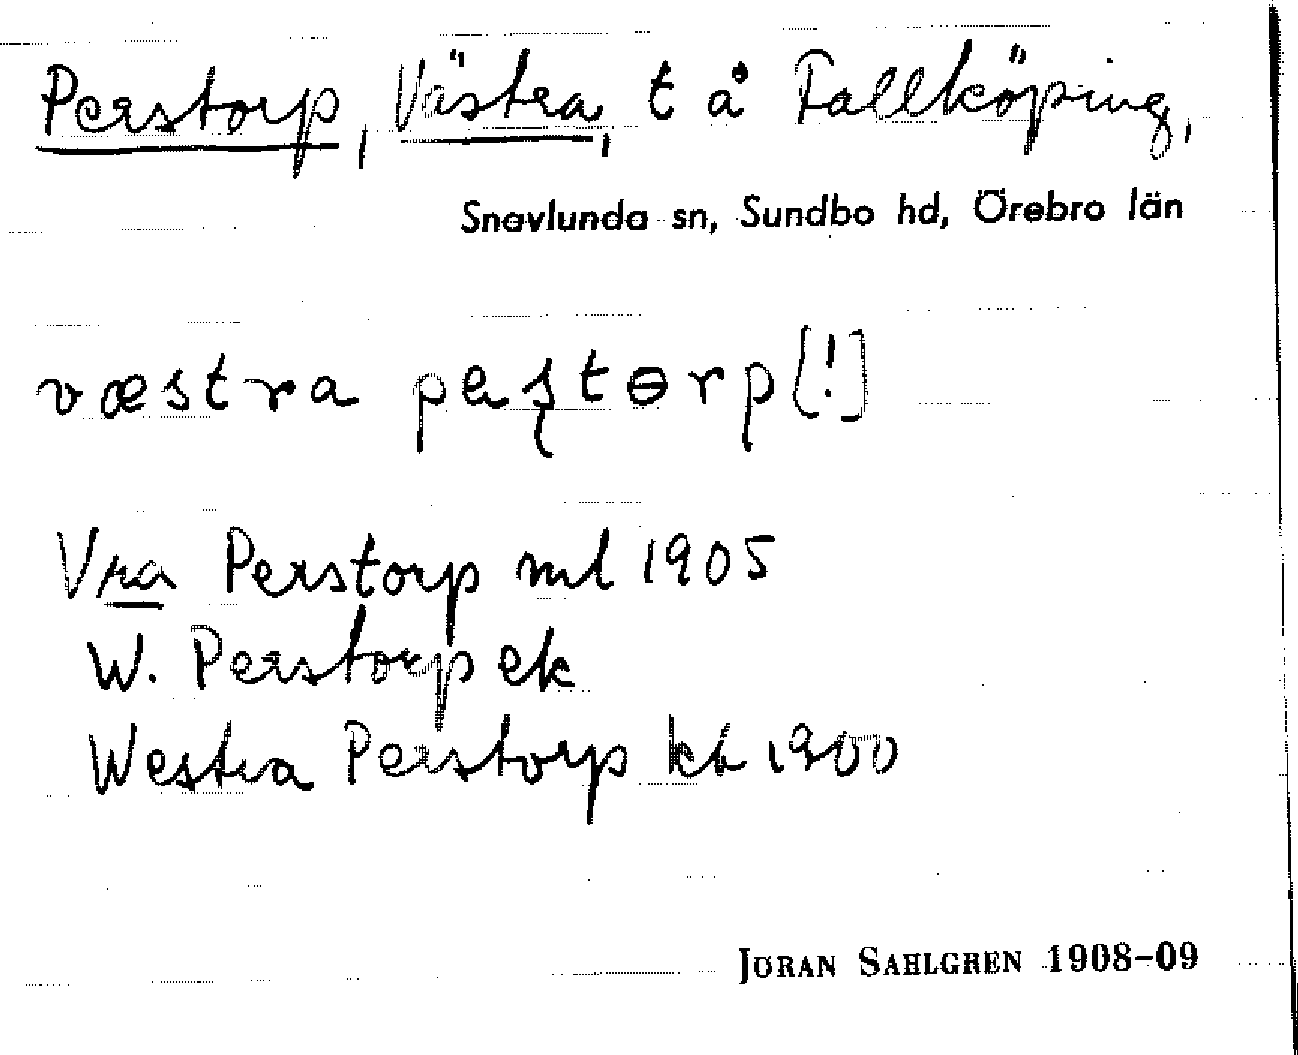 Perstorp, Västra, t å Fallköping,
Snavlunda sn, Sundbo hd, Örebro län
væstra pæʂtɵrp [!]
Vra Perstorp ml 1905
W. Perstorp ek
Westra Perstorp kb 1900
JÖRAN SAHLGREN 1908-09